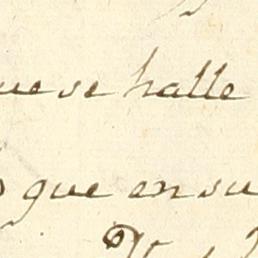 que se halle
que en su